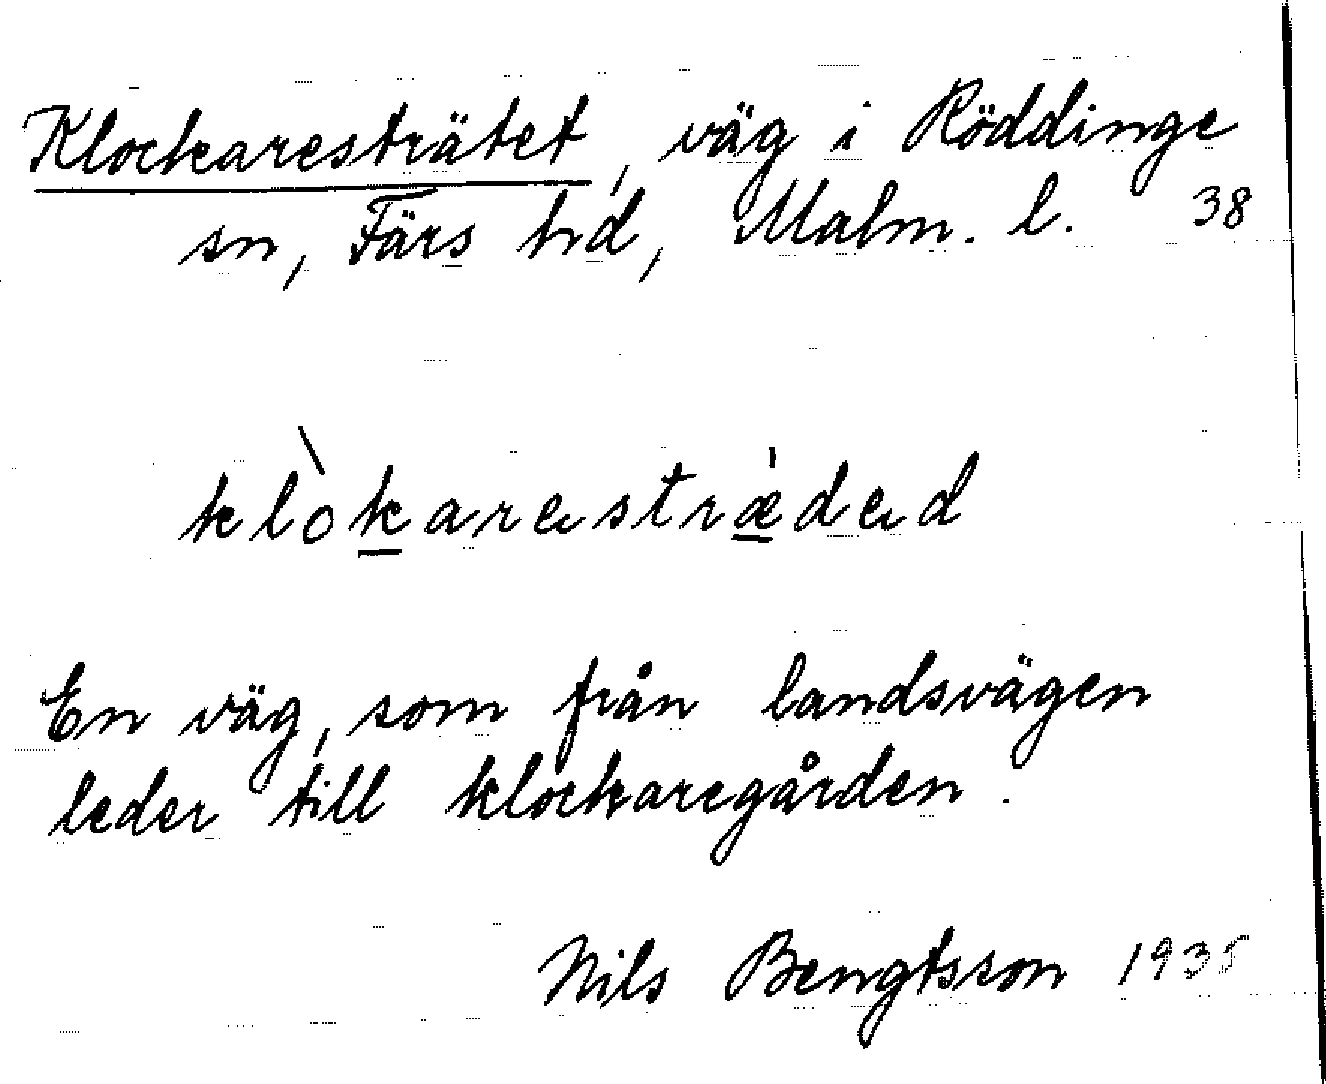 Klockaresträtet, väg i Röddinge
sn, Färs hd, Malm. l. 38
klòkarestræ̍ded
En väg, som från landsvägen
leder till klockaregården.
Nils Bengtsson 1935